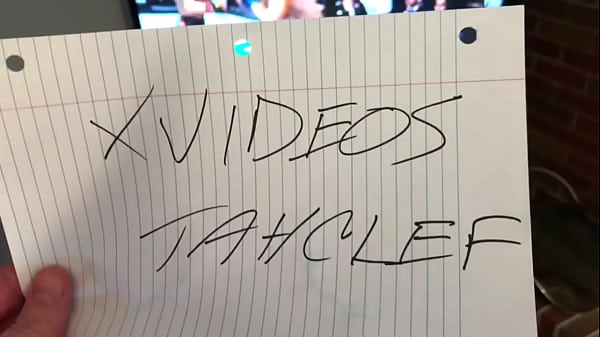 XVIDEOS
TAHCLEF